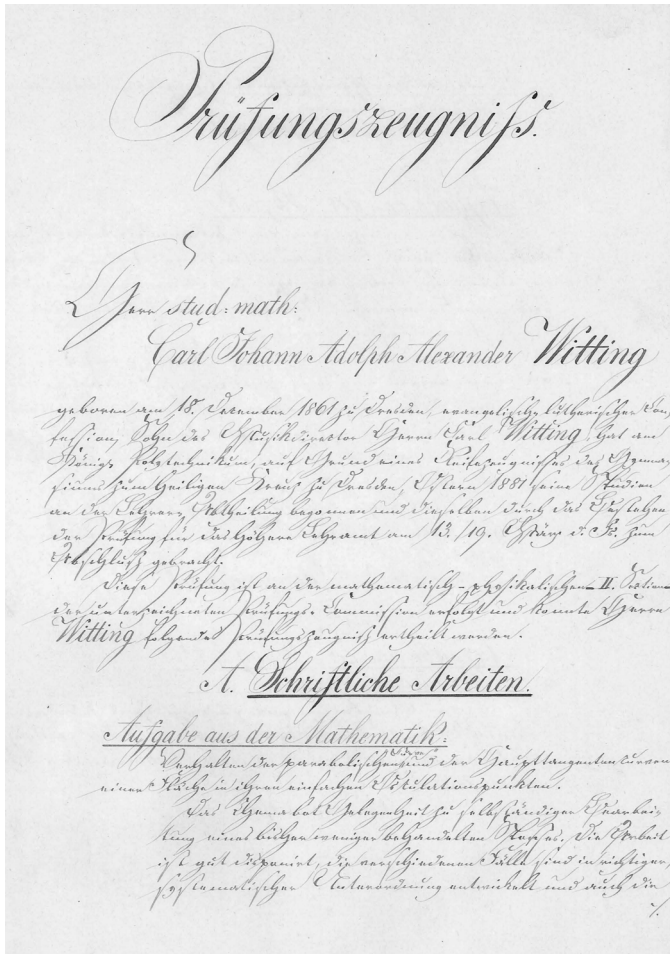 Prüfungszeugniss.
Herr stud: math:
Carl Johann Adolph Alexander Witting
geboren am 18. Dezember 1861 zu Dresden, evangelisch-lutherischer Con-
fession, Sohn des Musikdirector Herrn Carl Witting, hat am
Königl. Polytechnikum, auf Grund eines Reifezeugnisses des Gymna-
siums zum heiligen Kreuz zu Dresden, Ostern 1881 seine Studien
an der Lehrer-Abtheilung begonnen und dieselben durch das Bestehen
der Prüfung für das höhere Lehramt am 13./19. März d. Js. zum
Abschluß gebracht.
Diese Prüfung ist an der mathematisch-physikalischen II. Section
der unterzeichneten Prüfungs-Commission erfolgt und konnte Herrn
Witting folgendes Prüfungszeugniß ertheilt werden.
A. Schriftliche Arbeiten.
Aufgabe aus der Mathematik:
Verhalten der parabolischen und der Haupttangentencurven
einer Fläche in ihren einfachen Osculationspunkten.
Das Thema bot Gelegenheit zu selbständiger Bearbei-
tung eines bisher weniger behandelten Stoffes. Die Arbeit
ist gut disponirt, die verschiedenen Fälle sind in richtiger,
systematischer Unterordnung entwickelt und auch die
./.